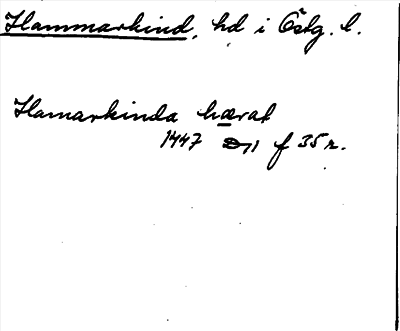 Hammarkind, hd i Östg. l.
Hamarkinda hærat
1447 D 11 f 35 r.